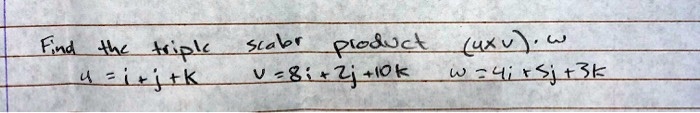 Find the triple scalar product (uxv).w
u = i+j+k v = 8i+2j+10k w = 4i+5j+3k